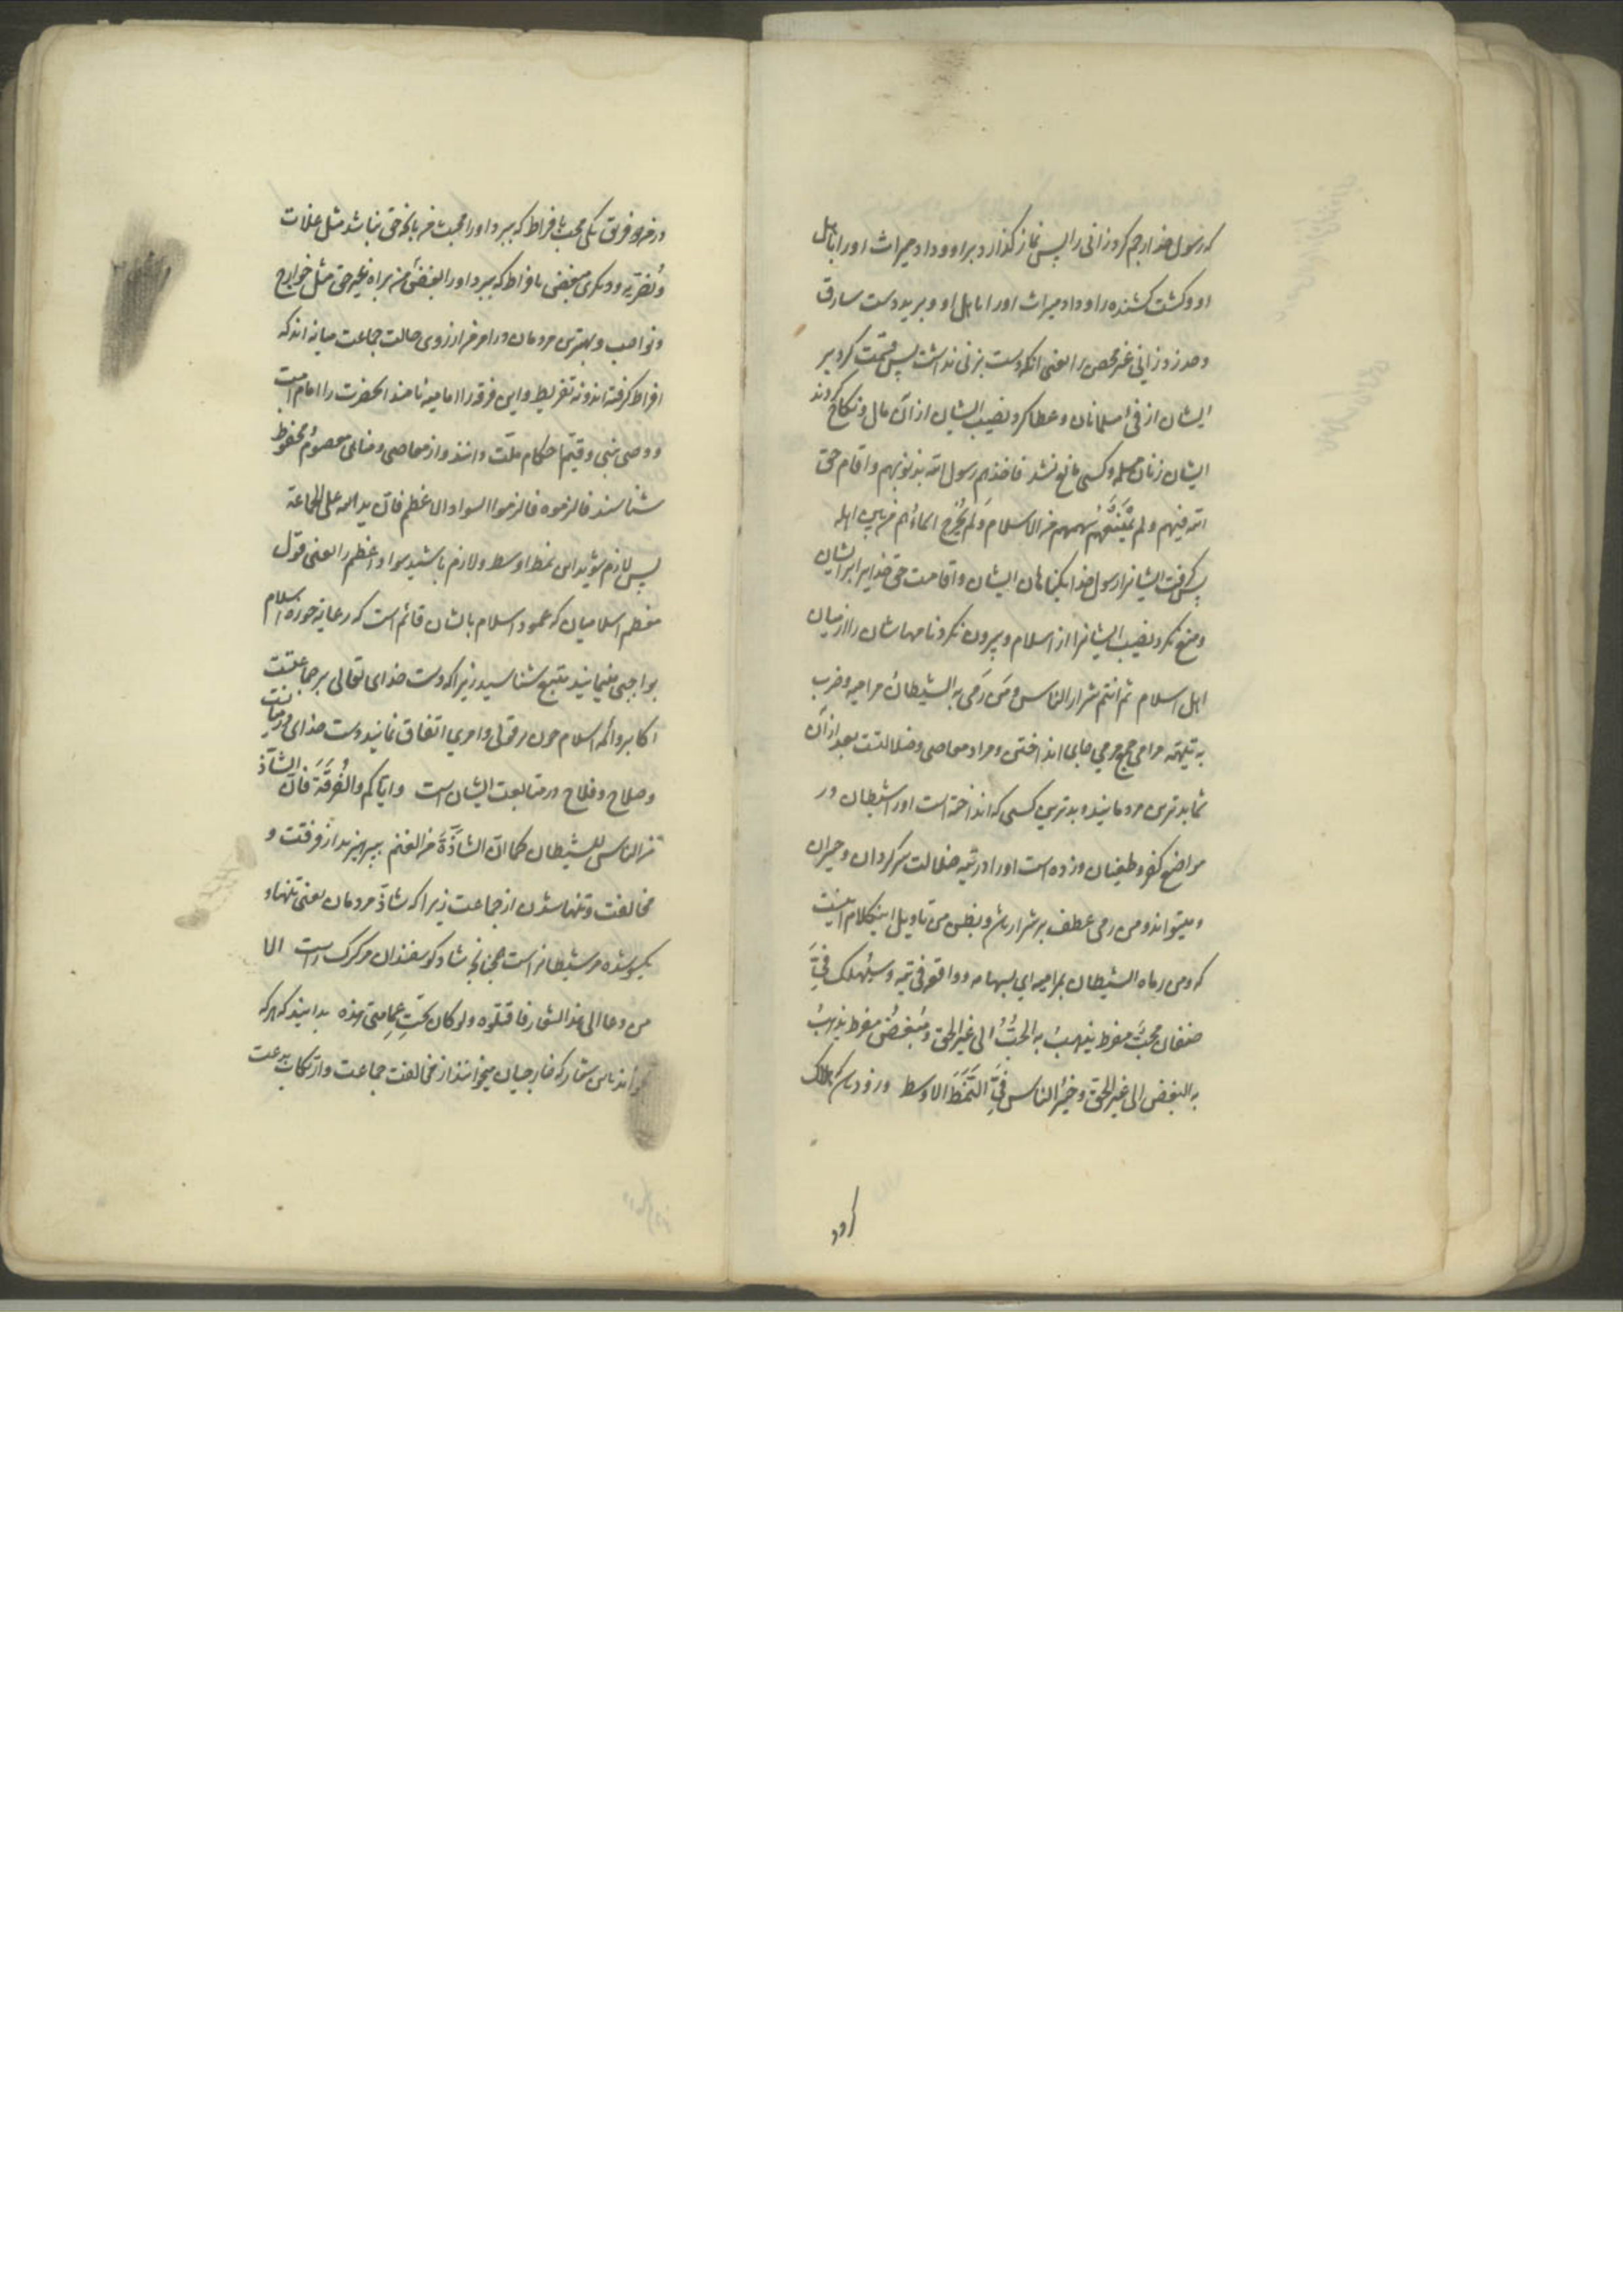 که رسول خدا رجم کرد زانی را پس نماز گذارد بر او و داد میراث او را باهل
او و کشت کشنده را و داد میراث او را باهل او و برید دست سارق
و حد زد زانی غیر محصن را یعنی آنکه دست بزنی نداشت پس قسمت کرد بر
ایشان از فئ مسلمانان و عطا کرد نصیب ایشان از آن مال و نکاح کردند
ایشان زنان مسلمه و کسی مانع نشد فاخذهم رسول الله بذنوبهم و اقام حق
الله فیهم و لم یمنعهم سهمهم من الاسلام و لم یخرج اسماءهم من بین اهله
پس گرفت ایشانرا رسول خدا بگناهان ایشان و اقامت حق خدا بر ایشان
و منع نکرد نصیب ایشانرا از اسلام و بیرون نکرد نامهاشان را از میان
اهل اسلام ثم انتم شرار الناس و من رمی به الشیطان مرامیه و ضرب
به تیهه مرامی جمع مرمی جای انداختن و مراد معاصی و ضلالتست بعد از آن
شما بدترین مردمانید و بدترین کسی که انداخته است او را شیطان در
مواضع کفر و طغیان و زده است او را در تیه ضلالت سرگردان و حیران
و میتواند و من رمی عطف بر شرار باشد و بطن من تاویل اینکلام اینست
که و من رماه الشیطان بمرامیه ای بسهامه و واقعه فی تیهه و سیهلک فیّ
صنفان محبّ مفرط یذهب به الحبّ الی غیر الحق و مبغض مفرط یذهب
به البغض الی غیر الحق و خیر الناس فیّ النمط الاوسط و زود باشد که هلاک
گردد
در من دو فرق یکی محب بافراط که ببرد او را محبت من بآنچه حق نباشد مثل غلات
و نصریه و دیگری مبغض بافراط که ببرد او را بغض من براه غیر حق مثل خوارج
و نواصب و بهترین مردمان در امر من از روی حالت جماعت میانه‌اند که
افراط گرفته‌اند و نه تفریط و این فرقه را امامیه نامند آنحضرت را امام امت
و وصی نبی و قیّم احکام ملّت دانند و از معاصی و مناهی معصوم و محفوظ
شناسند فالزموه فالزموا السواد الاعظم فان ید الله علی الجماعة
پس لازم شوید این نمط اوسط و لازم باشید سواد اعظم را یعنی قول
معظم اسلامیان که عمود اسلام بایشان قائم است که رعایه حوزه اسلام
بواجبی مینمایند متبع شناسید زیرا که دست خدای تعالی بر جماعتست
اکابر و ائمه اسلام چون بر قولی و امری اتفاق نمایند دست خدای در میانست
و صلاح و فلاح در متابعت ایشان است و ایاکم و الفرقة فان الشاذّ
من الناس للشیطان کما ان الشاذّة من الغنم بپرهیزید از فرقت و
مخالفت و تنها شدن از جماعت زیرا که شاذّ مردمان یعنی تنها و
یکسو شده مر شیطانراست چنانچه شاد گوسفندان مر گرگ راست الا
من دعا الی هذا الشعار فاقتلوه و لو کان تحت عمامتی هذه بدانید که هر که
خواند باین شعار که خارجیان میخوانند از مخالفت جماعت و ارتکاب بدعت